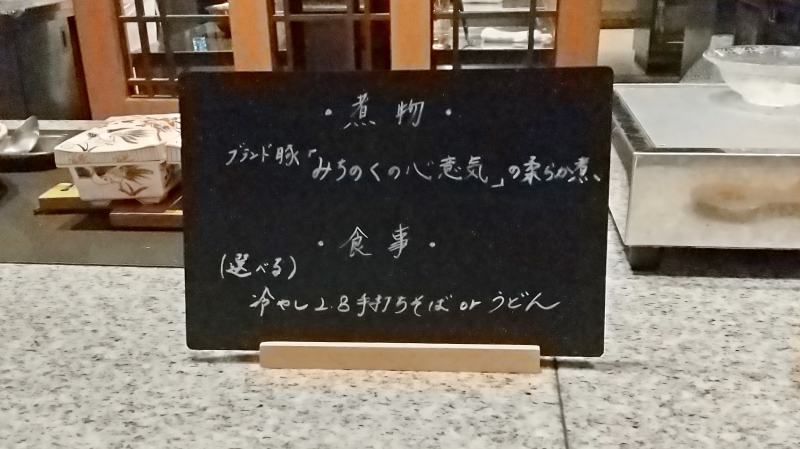 ・煮物・
ブランド豚「みちのくの心意気」の柔らか煮、
・食事・
(選べる)
冷やし2.8手打ちそば or うどん